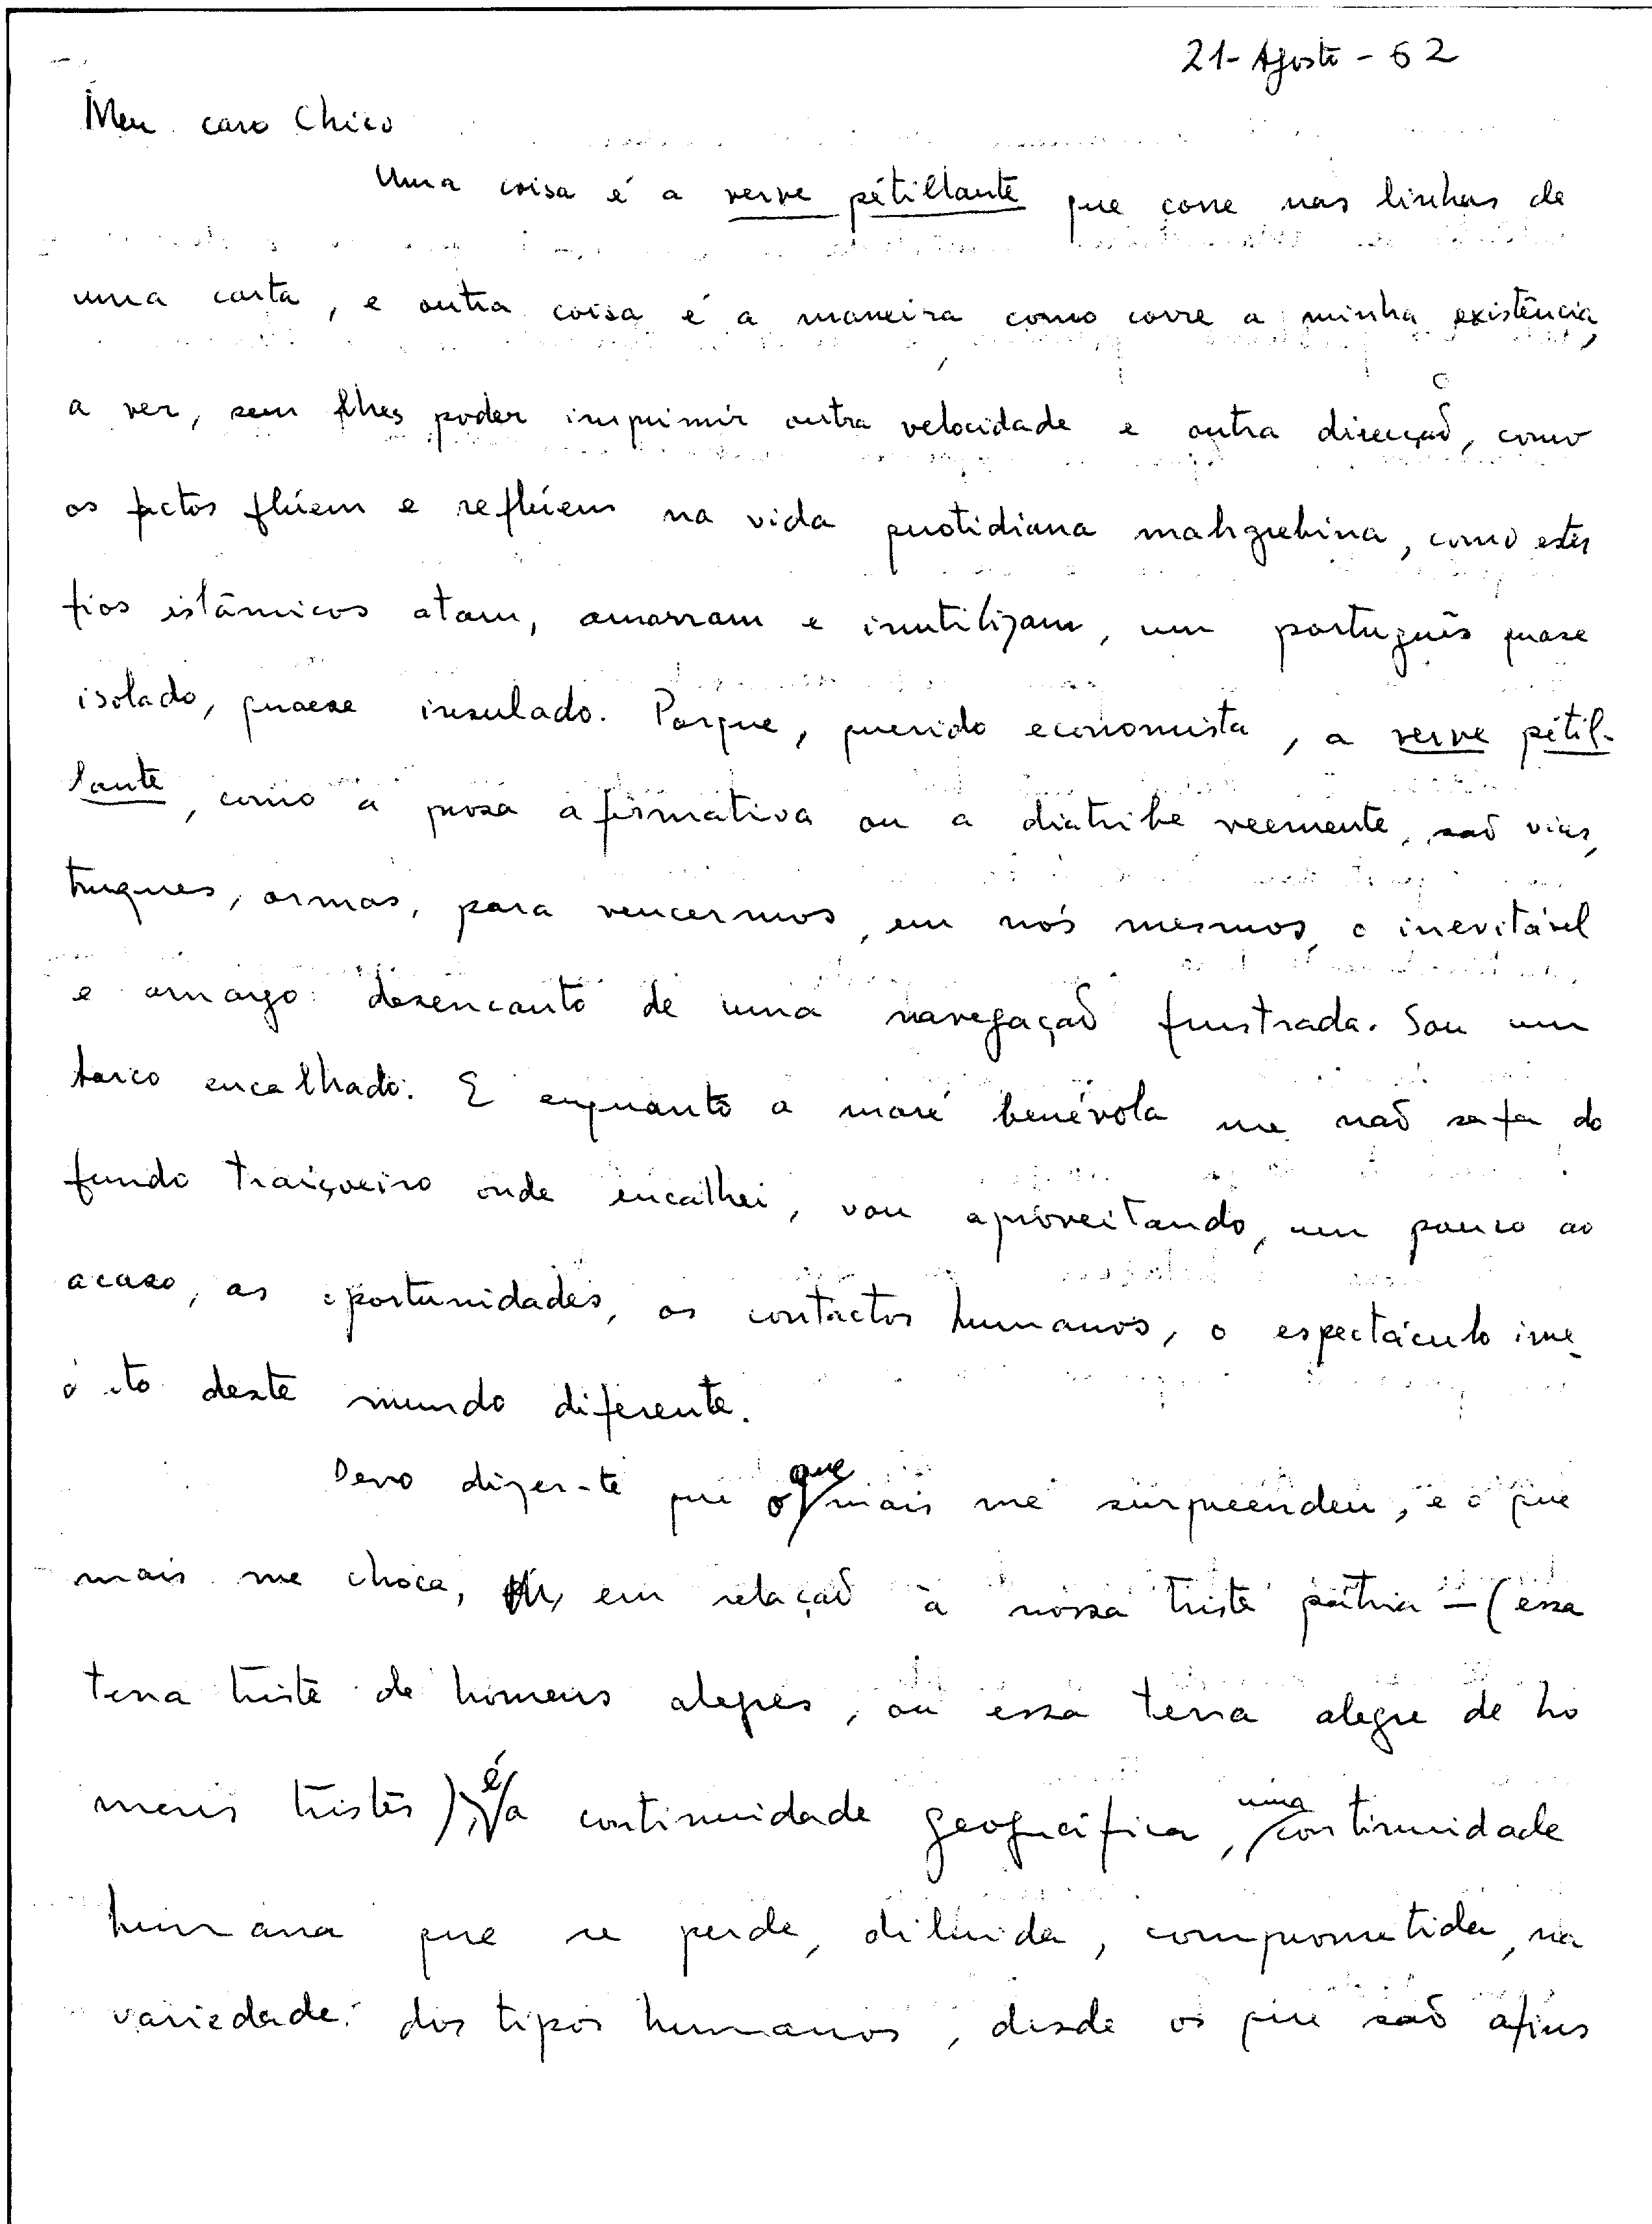 21-Agosto-62
Meu caro Chico
Uma coisa é a verve pétillante que corre nas linhas de
uma carta, e outra coisa é a maneira como corre a minha existência,
a ver, sem lhes poder imprimir outra velocidade e outra direcção, como
os factos flúem e reflúem na vida quotidiana mahgrebina, como estes
fios islâmicos atam, amarram e inutilizam, um português quase
isolado, quase insulado. Porque, querido economista, a verve pétil-
lante, como a prosa afirmativa ou a diatribe veemente, são vias,
truques, armas, para vencermos, em nós mesmos, o inevitável
e amargo desencanto de uma navegação frustrada. Sou um
barco encalhado. E enquanto a maré benévola me não safa do
fundo traiçoeiro onde encalhei, vou aproveitando, um pouco ao
acaso, as oportunidades, os contactos humanos, o espectáculo iné
dito deste mundo diferente.
Devo dizer-te que o que mais me surpreendeu, e o que
mais me choca, em relação à nossa triste pátria - (essa
terra triste de homens alegres, ou essa terra alegre de ho
mens tristes), é a continuidade geográfica, uma continuidade
humana que se perde, diluida, comprometida, na
variedade dos tipos humanos, desde os que são afins